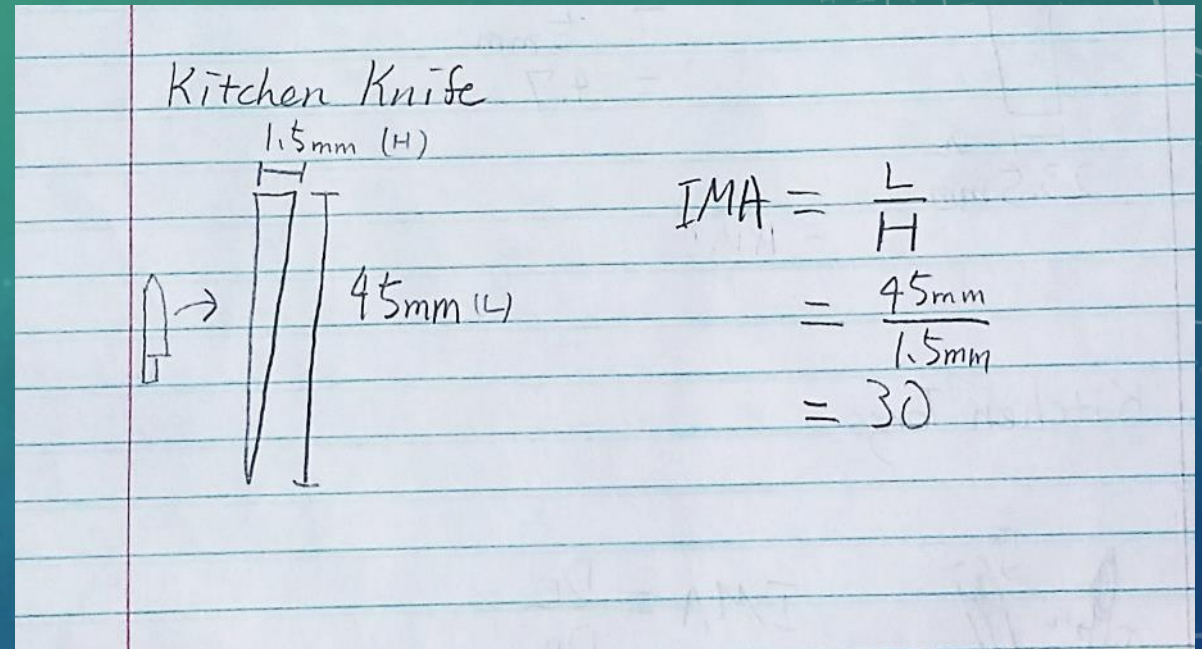 Kitchen Knife
1.5mm (H)
45mm (L)
IMA = L/H
= 45mm/1.5mm
= 30